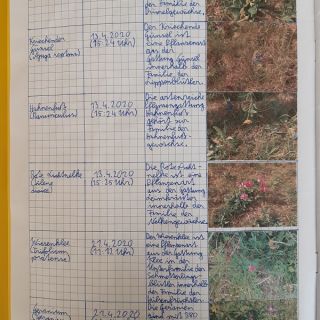 der Familie der
Kriechender
Günsel
(Ajuga reptans)
13.4.2020
(15:24 Uhr)
Der Kriechende
Günsel ist
eine Pflanzenart
aus der
Gattung Günsel
innerhalb der
Familie der
Lippenblütler.
Hahnenfuß
(Ranunculus)
13.4.2020
(15:24 Uhr)
Die artenreiche
Pflanzengattung
Hahnenfuß
gehört zur
Familie der
Hahnenfuß-
gewächse.
Rote Lichtnelke
(Silene
dioica)
13.4.2020
(15:25 Uhr)
Die Rote Licht-
nelke ist eine
Pflanzenart
aus der Gattung
Leimkräuter
innerhalb der
Familie der
Nelkengewächse.
Wiesenklee
(Trifolium
pratense)
21.4.2020
Der Wiesenklee ist
eine Pflanzenart
aus der Gattung
Klee in der
Unterfamilie der
Schmetterlings-
blütler innerhalb
der Familie der
Hülsenfrüchtler.
Geranium
21.4.2020
Die Geranien
sind mit 380